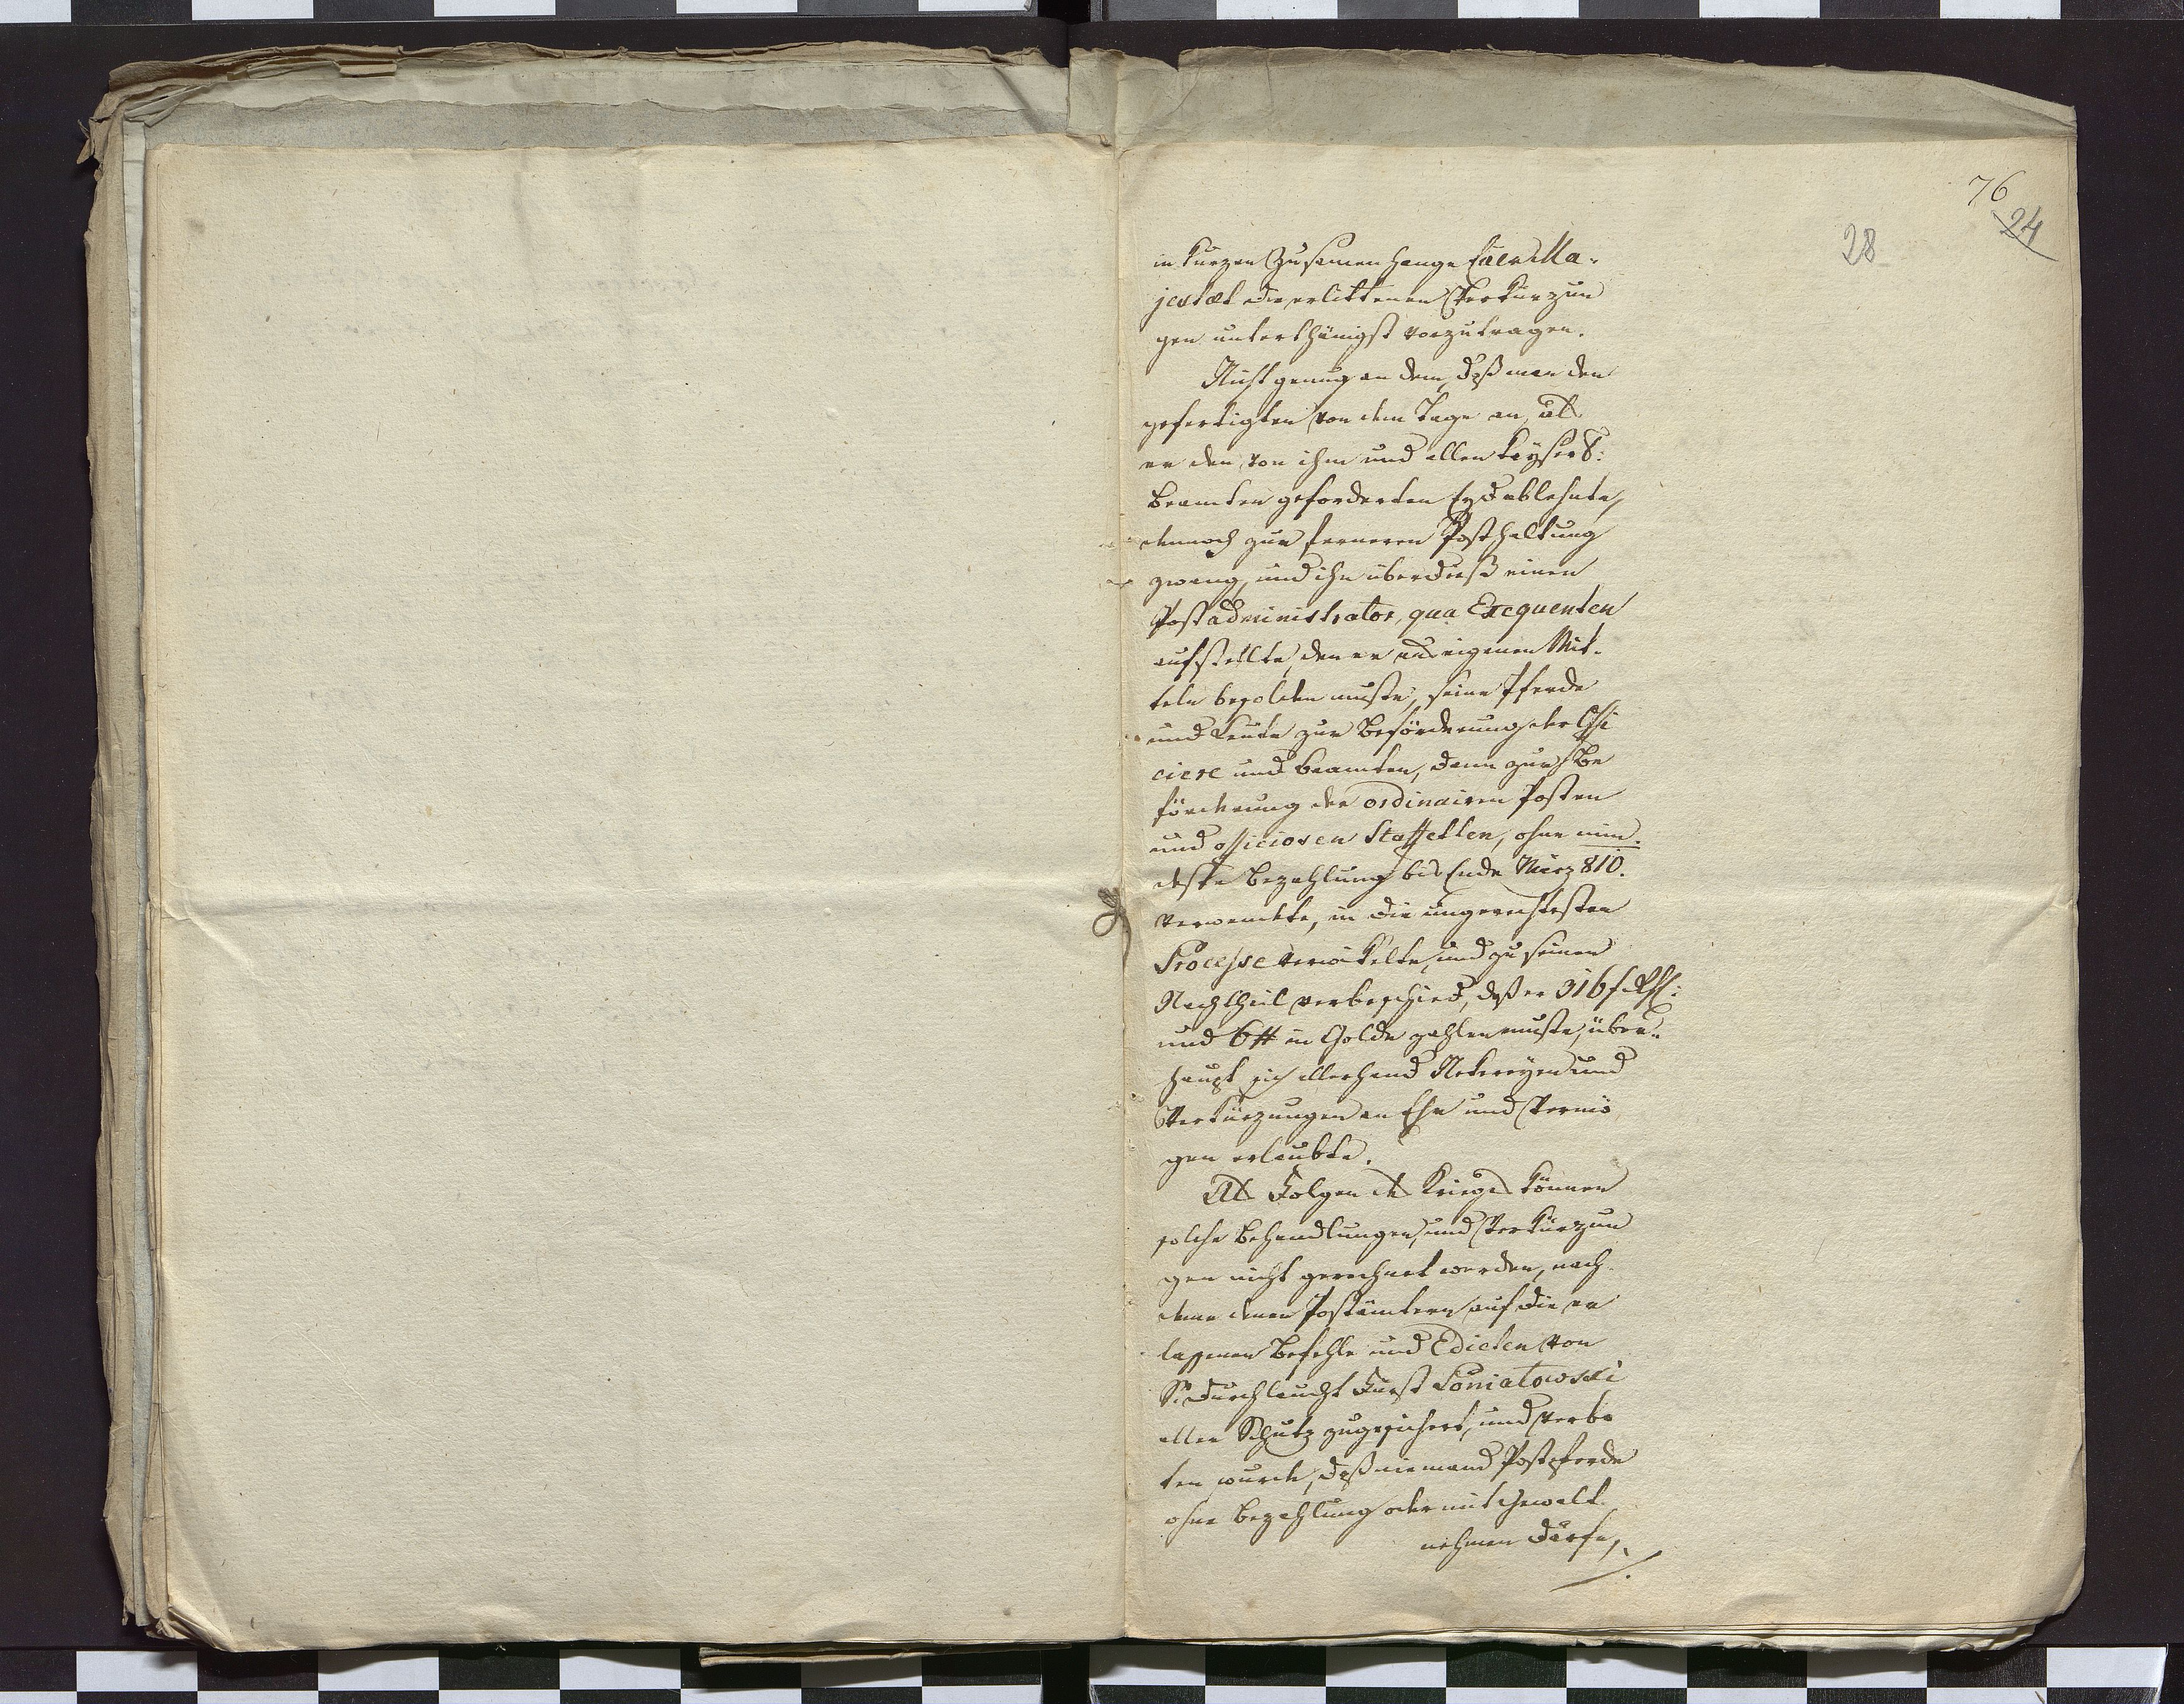 76
24
28
in kurzen Zusamenhange Euer Ma-
jestæt die erlittenen Verkürzun
gen unterthänigst vorzutragen.
Nicht genug an dem, daß man den
gefertigten von dem Tage an, als
er den von ihm und allen Kayserl:
Beamten geforderten Eyd ablehnte,
dennoch zur ferneren Posthaltung
zwang, und ihn überdieß einen
Postadministrator, qua Exequenten
aufstellte, den er aus eigenen Mit-
teln besolden mußte, seine Pferde
und Leute zur Beförderung der Offi
ciere und Beamten, dann zur Be
förderung der ordinairen Posten
und officiosen Staffetten, ohne min-
deste Bezahlung bis Ende März 810.
verwendete, in die ungerechtesten
Processe verwikelte, und zu seinen
Nachtheil verbeschied, daß er 316 f
und 6# in Golde zahlen mußte, über-
haupt sich allerhand Nekereyen und
Verkürzungen an Ehr und Vermö
gen erlaubte.
Als Folgen des Kriegs können
solche Behandlungen, und Verkürzun
gen nicht gerechnet werden, nach
deme denen Postämtern auf die er
lassenen Befehle und Edicten von
Sr Durchlaucht Fürst Poniatowski
aller Schutz zugesichert, und verbo
ten wurde, daß niemand Postpferde
ohne Bezahlung oder mit Gewalt
nehmen dürfe,